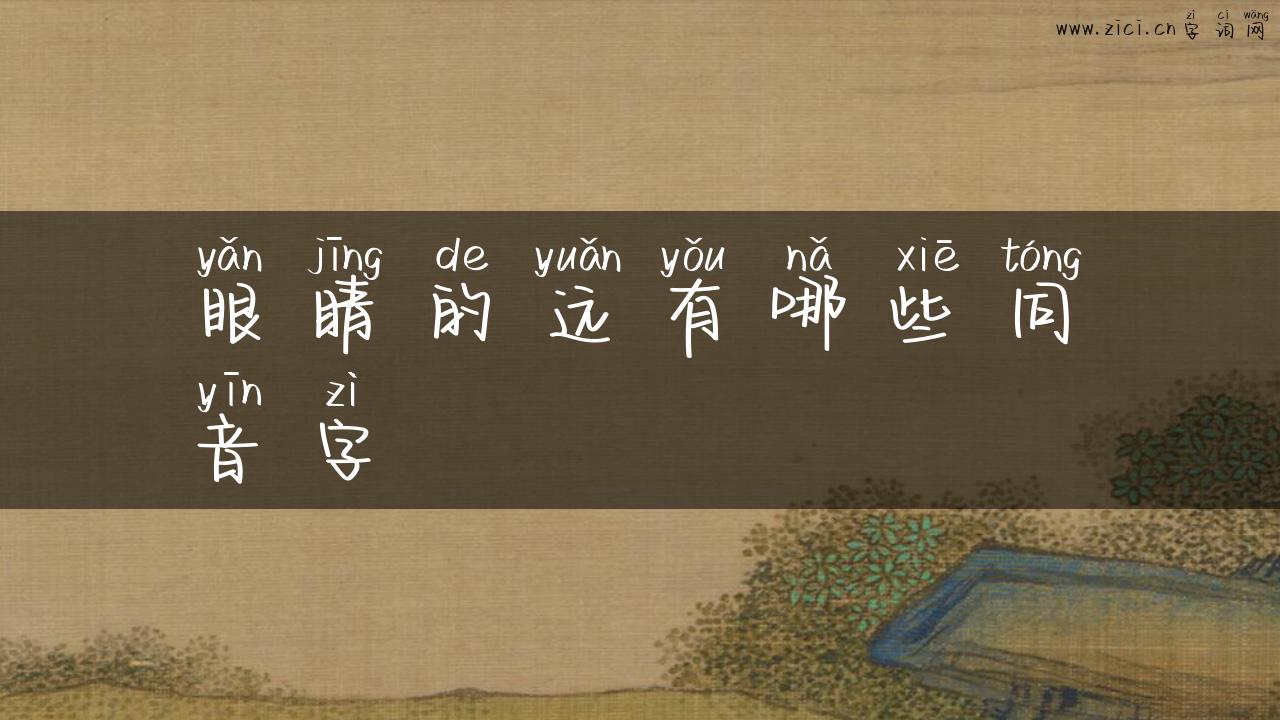 zì cí wǎng
www.zici.cn 字词网
yǎn jīng de yuǎn yǒu nǎ xiē tóng
眼睛的远有哪些同
yīn zì
音字